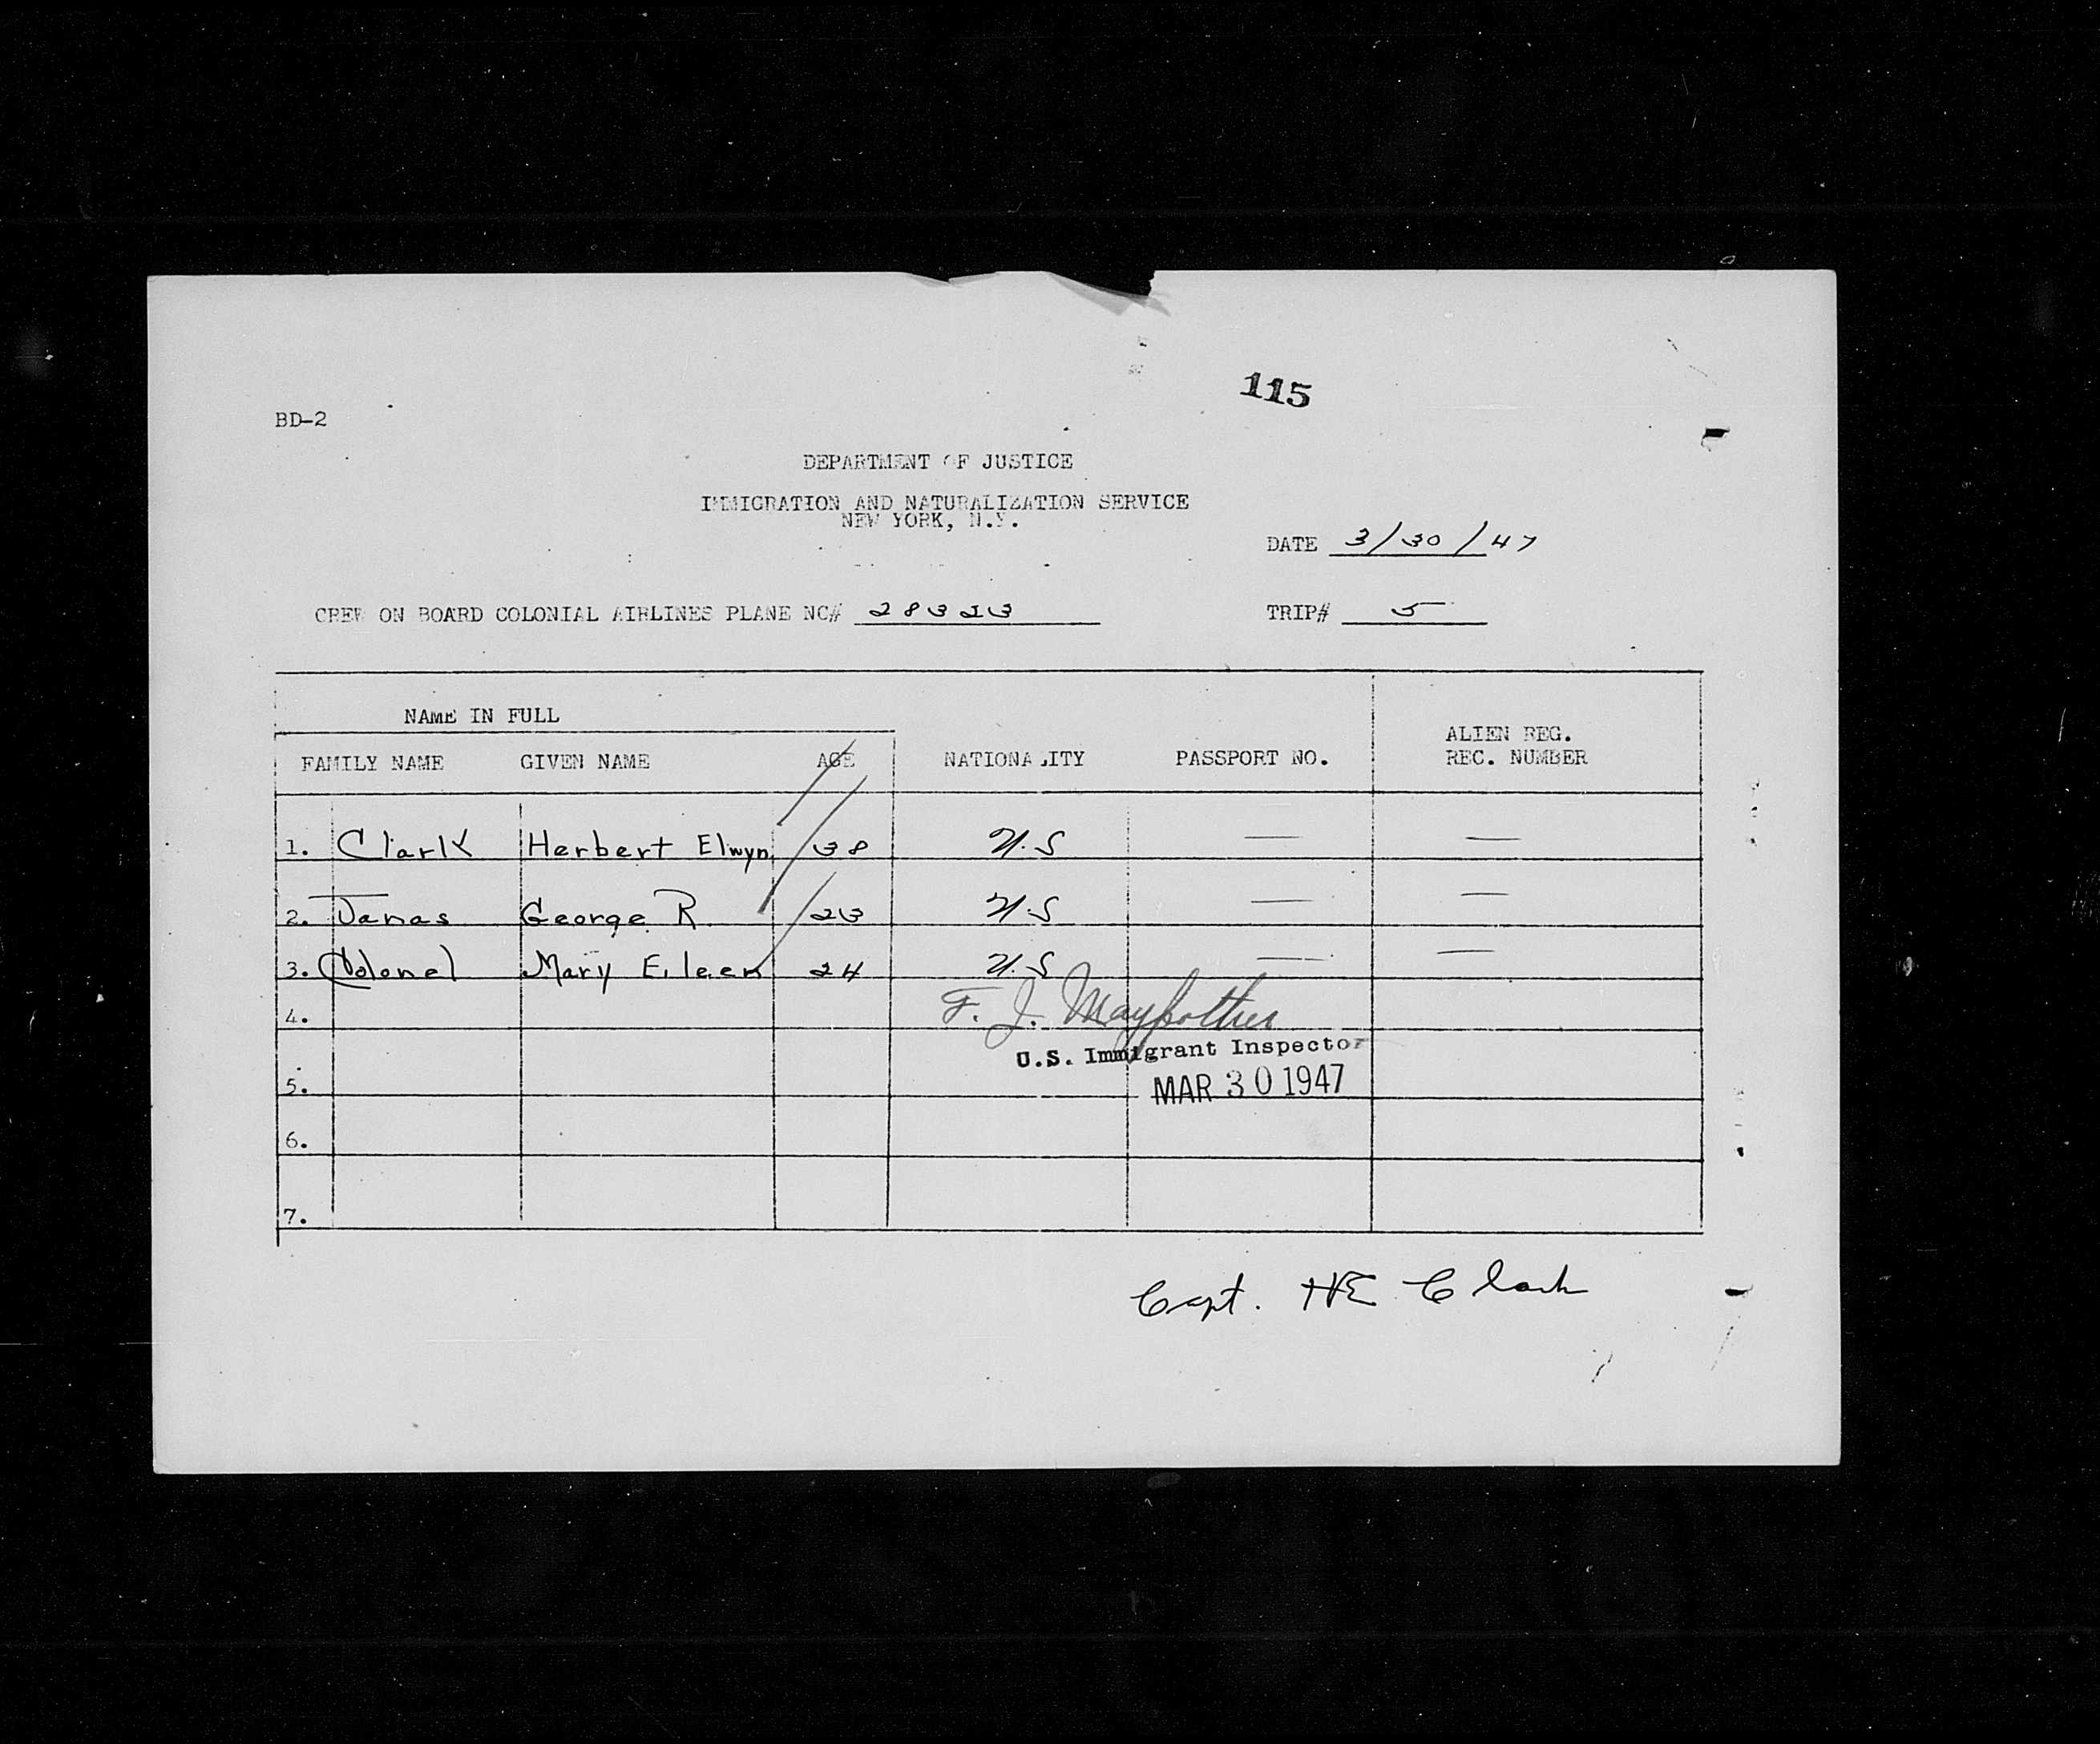 115
BD-2
DEPARTMENT OF JUSTICE
IMMIGRATION AND NATURALIZATION SERVICE
NEW YORK, N.Y.
DATE 3/30/47
CREW ON BOARD COLONIAL AIRLINES PLANE NC# 28323 TRIP# 5
NAME IN FULL
FAMILY NAME GIVEN NAME AGE NATIONALITY PASSPORT NO. ALIEN REG. REC. NUMBER
1. Clark Herbert Elwyn 38 U.S — —
2. Janas George R 23 U.S — —
3. Colonel Mary Eileen 24 U.S — —
F. J. Maypother
4.
U.S. Immigrant Inspector
5. MAR 30 1947
6.
7.
Capt. HE Clark